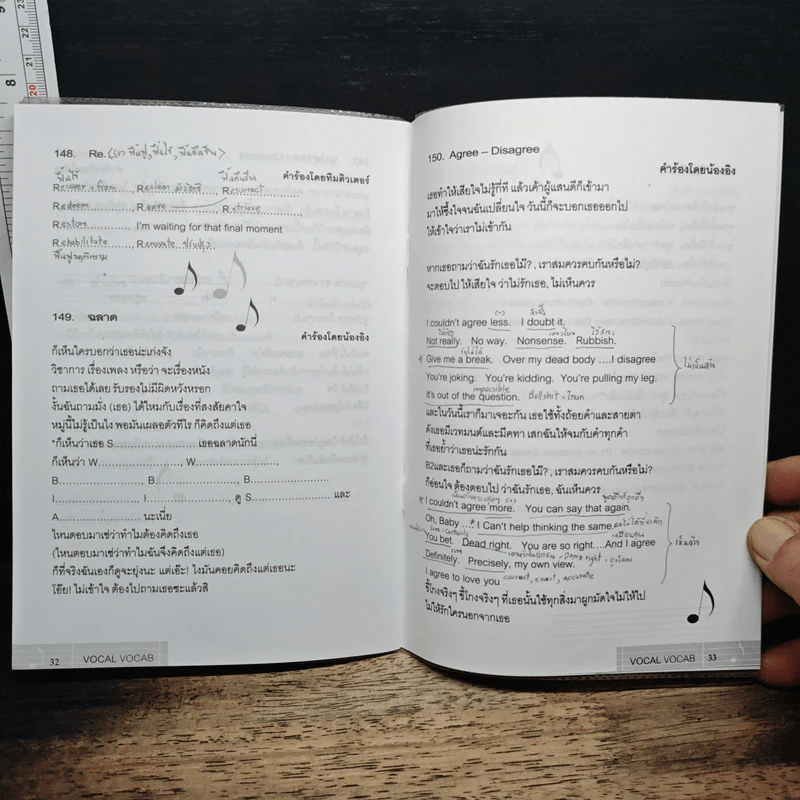 148. Re.
คำร้องโดยทีมติวเตอร์
Recover + from...., Reclaim, Resurrect
Redeem, Revive, Retrieve
Restore I'm waiting for that final moment
Rehabilitate, Renovate
149. ฉลาด
คำร้องโดยน้องอิง
ก็เห็นใครบอกว่าเธอน่ะเก่งจัง
วิชาการ เรื่องเพลง หรือว่า จะเรื่องหนัง
ถามเธอได้เลย รับรองไม่มีผิดหวังหรอก
งั้นฉันถามมั่ง (เธอ) ได้ไหมกับเรื่องที่สงสัยคาใจ
หมู่นี้ไม่รู้เป็นไง พอมันเผลอตัวทีไร ก็คิดถึงแต่เธอ
*ก็เห็นว่าเธอ S........................ เธอฉลาดนักนี่
ก็เห็นว่า W........................, W........................
B........................, B........................, B........................
I........................, I........................ ดู S........................ และ
A........................ นะเนี่ย
ไหนตอบมาเซ่ว่าทำไมต้องคิดถึงเธอ
(ไหนตอบมาเซ่ว่าทำไมฉันจึงคิดถึงแต่เธอ)
ก็ที่จริงฉันเองก็ดูจะยุ่งนะ แต่เอ๊ะ! ไงมันคอยคิดถึงแต่เธอนะ
โอ๊ย! ไม่เข้าใจ ต้องไปถามเธอซะแล้วสิ
32 VOCAL VOCAB
150. Agree – Disagree
คำร้องโดยน้องอิง
เธอทำให้เสียใจไม่รู้กี่ที แล้วเค้าผู้แสนดีก็เข้ามา
มาให้ซึ้งใจจนฉันเปลี่ยนใจ วันนี้ก็จะบอกเธอออกไป
ให้เข้าใจว่าเราไม่เข้ากัน
หากเธอถามว่าฉันรักเธอไม๊? , เราสมควรคบกันหรือไม่?
จะตอบไป ให้เสียใจ ว่าไม่รักเธอ, ไม่เห็นควร
I couldn't agree less. I doubt it.
Not really. No way. Nonsense. Rubbish.
Give me a break. Over my dead body ....I disagree
ไม่เห็นด้วย
You're joking. You're kidding. You're pulling my leg.
impossible
It's out of the question. Bullshit
และในวันนี้เราก็มาเจอะกัน เธอใช้ทั้งถ้อยคำและสายตา
ดังเธอมีเวทมนต์และมีคทา เสกฉันให้จมกับคำทุกคำ
ที่เธอย้ำว่าเธอน่ะรักกัน
B2และเธอก็ถามว่าฉันรักเธอไม๊? , เราสมควรคบกันหรือไม่?
ก็อ่อนใจ ต้องตอบไป ว่าฉันรักเธอ, ฉันเห็นควร
*I couldn't agree more. You can say that again.
Oh, Baby ...* I Can't help thinking the same.
You bet. Dead right. You are so right....And I agree
เห็นด้วย
Definitely. Precisely, my own view.
I agree to love you correct, exact, accurate
ขี้โกงจริงๆ ขี้โกงจริงๆ ที่เธอนั้นใช้ทุกสิ่งมาผูกมัดใจไม่ให้ไป
ไม่ให้รักใครนอกจากเธอ
VOCAL VOCAB 33